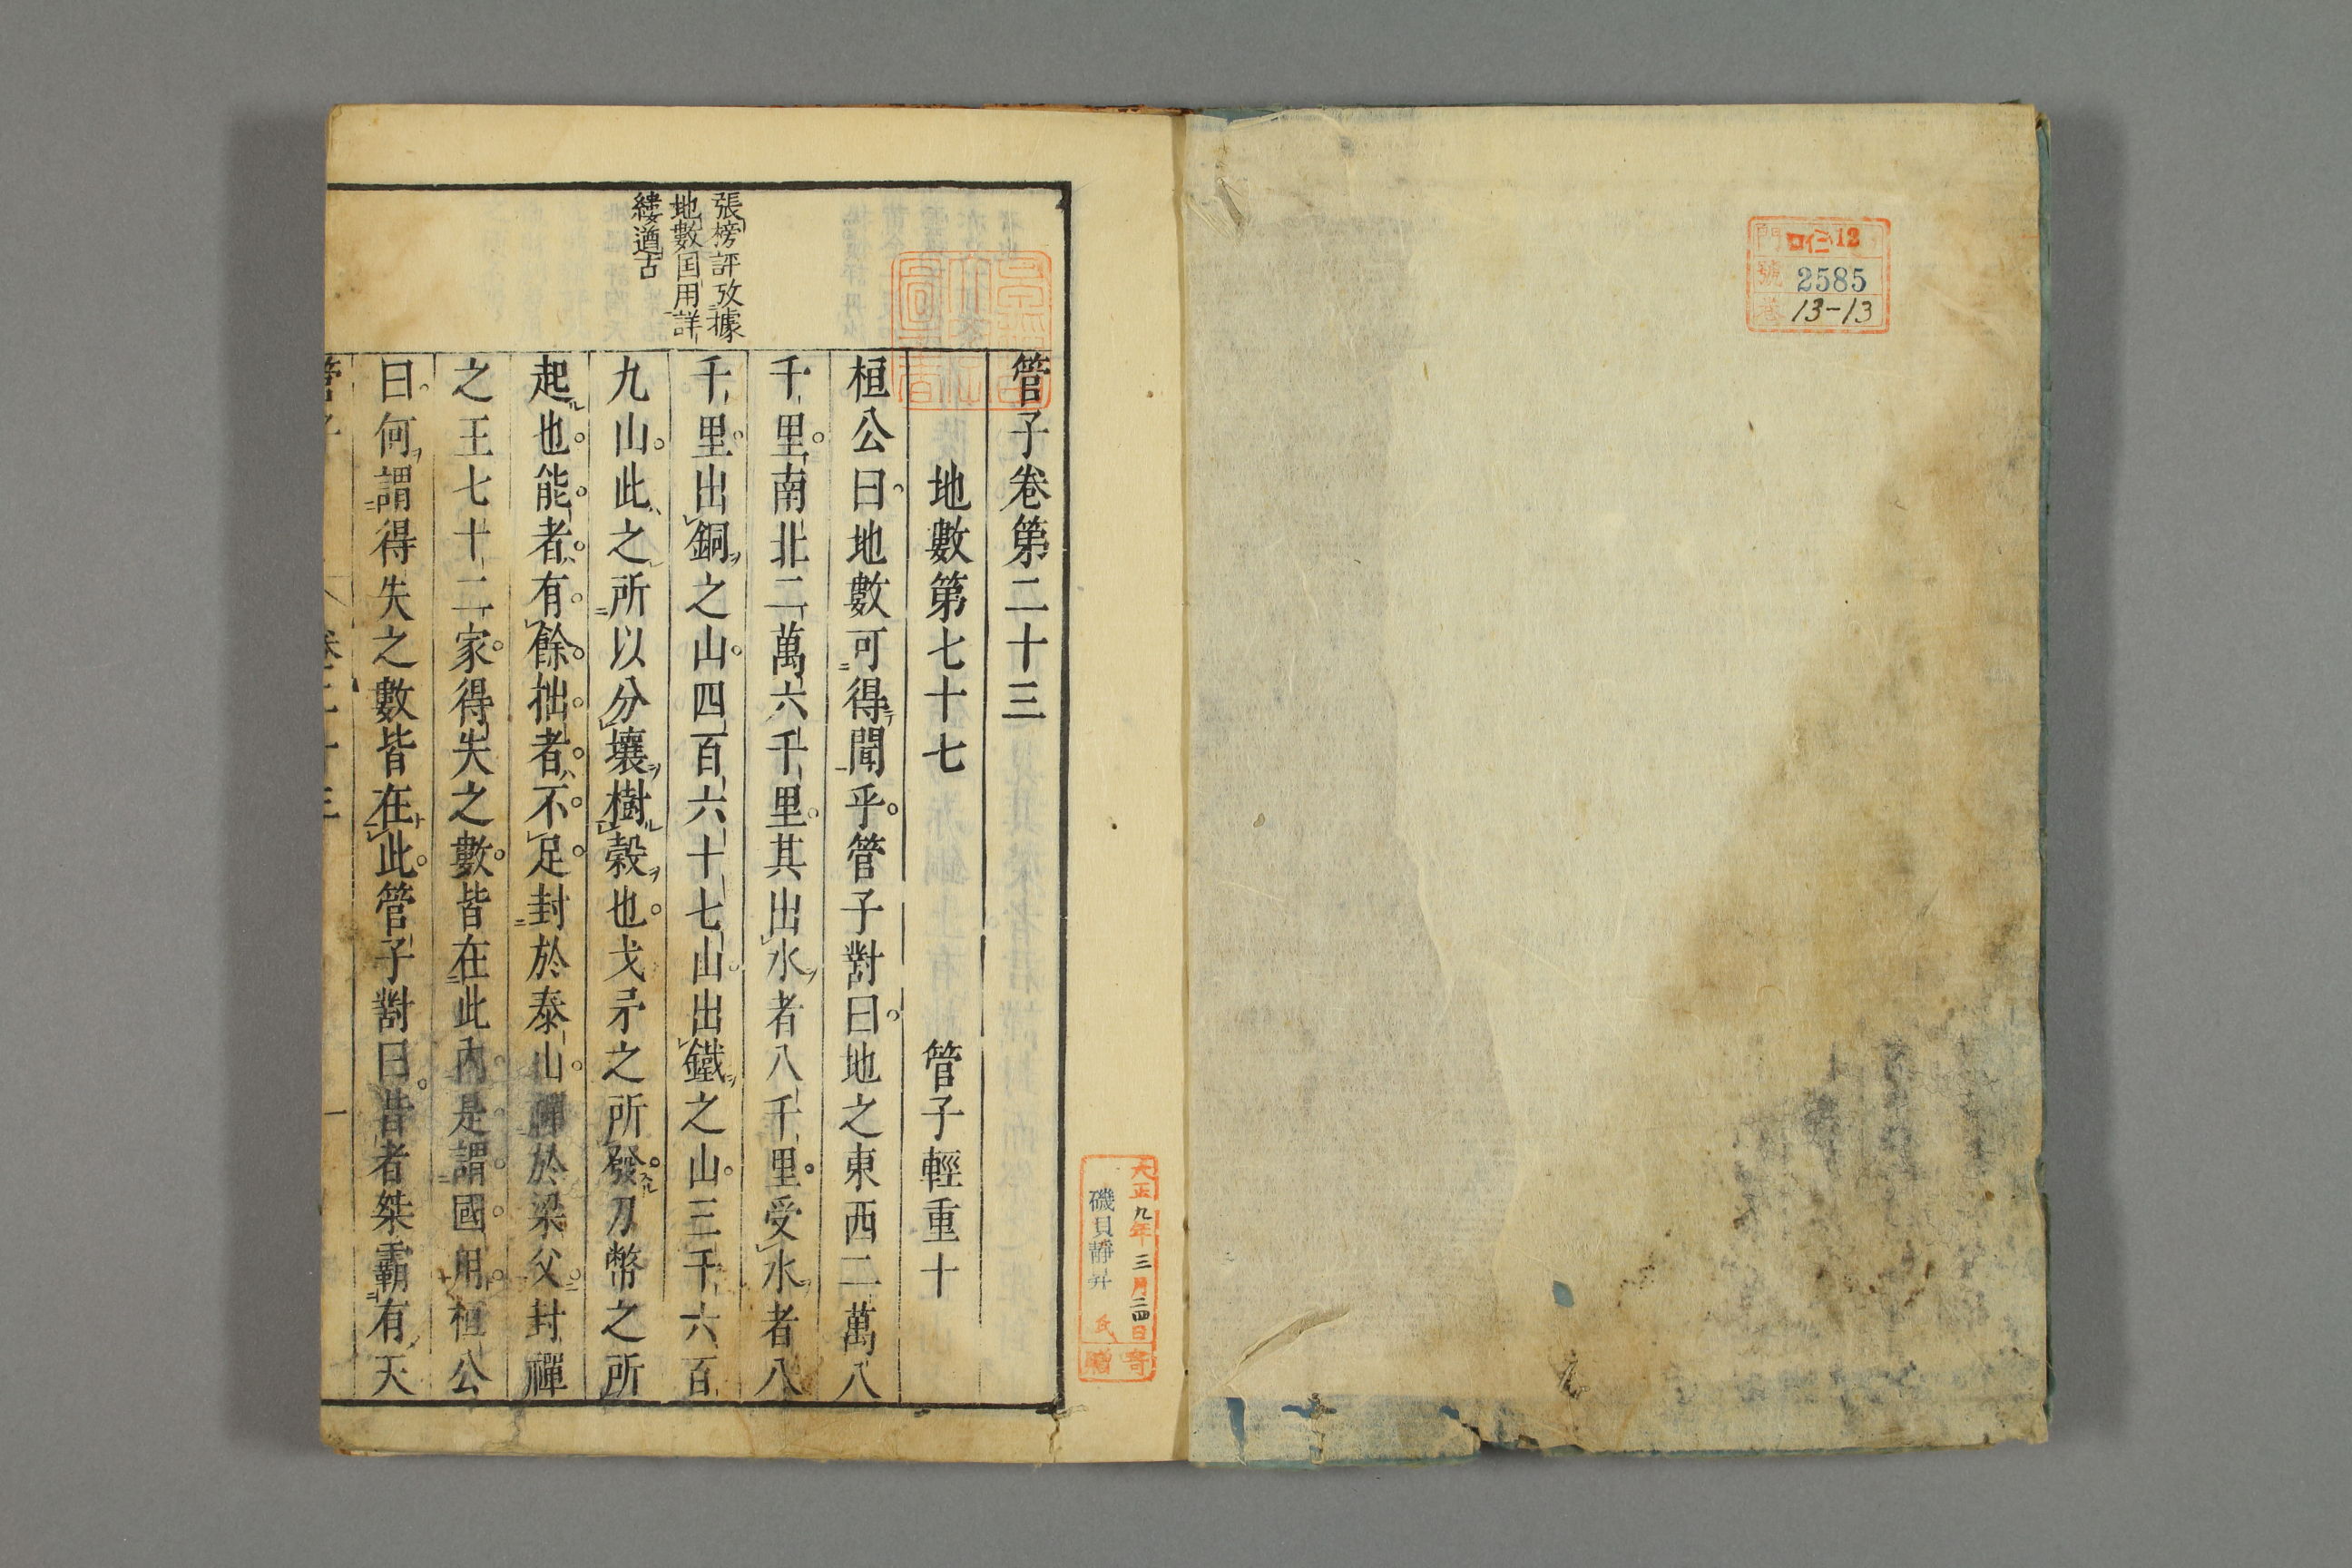 門 ロ仁 12
號 2585
卷 13-13
大正九年三月二四日寄贈
磯貝靜井氏
管子卷第二十三
地數第七十七 管子輕重十
桓公曰地數可得聞乎管子對曰地之東西二萬八
千里南北二萬六千里其出水者八千里受水者八
千里出銅之山四百六十七山出鐵之山三千六百
九山此之所以分壤樹穀也戈矛之所發刀幣之所
起也能者有餘拙者不足封於泰山禪於梁父封禪
之王七十二家得失之數皆在此內是謂國用桓公
曰何謂得失之數皆在此管子對曰昔者桀霸有天
張榜評攷據
地數国用詳
縷遒古
管子 卷二十三 一